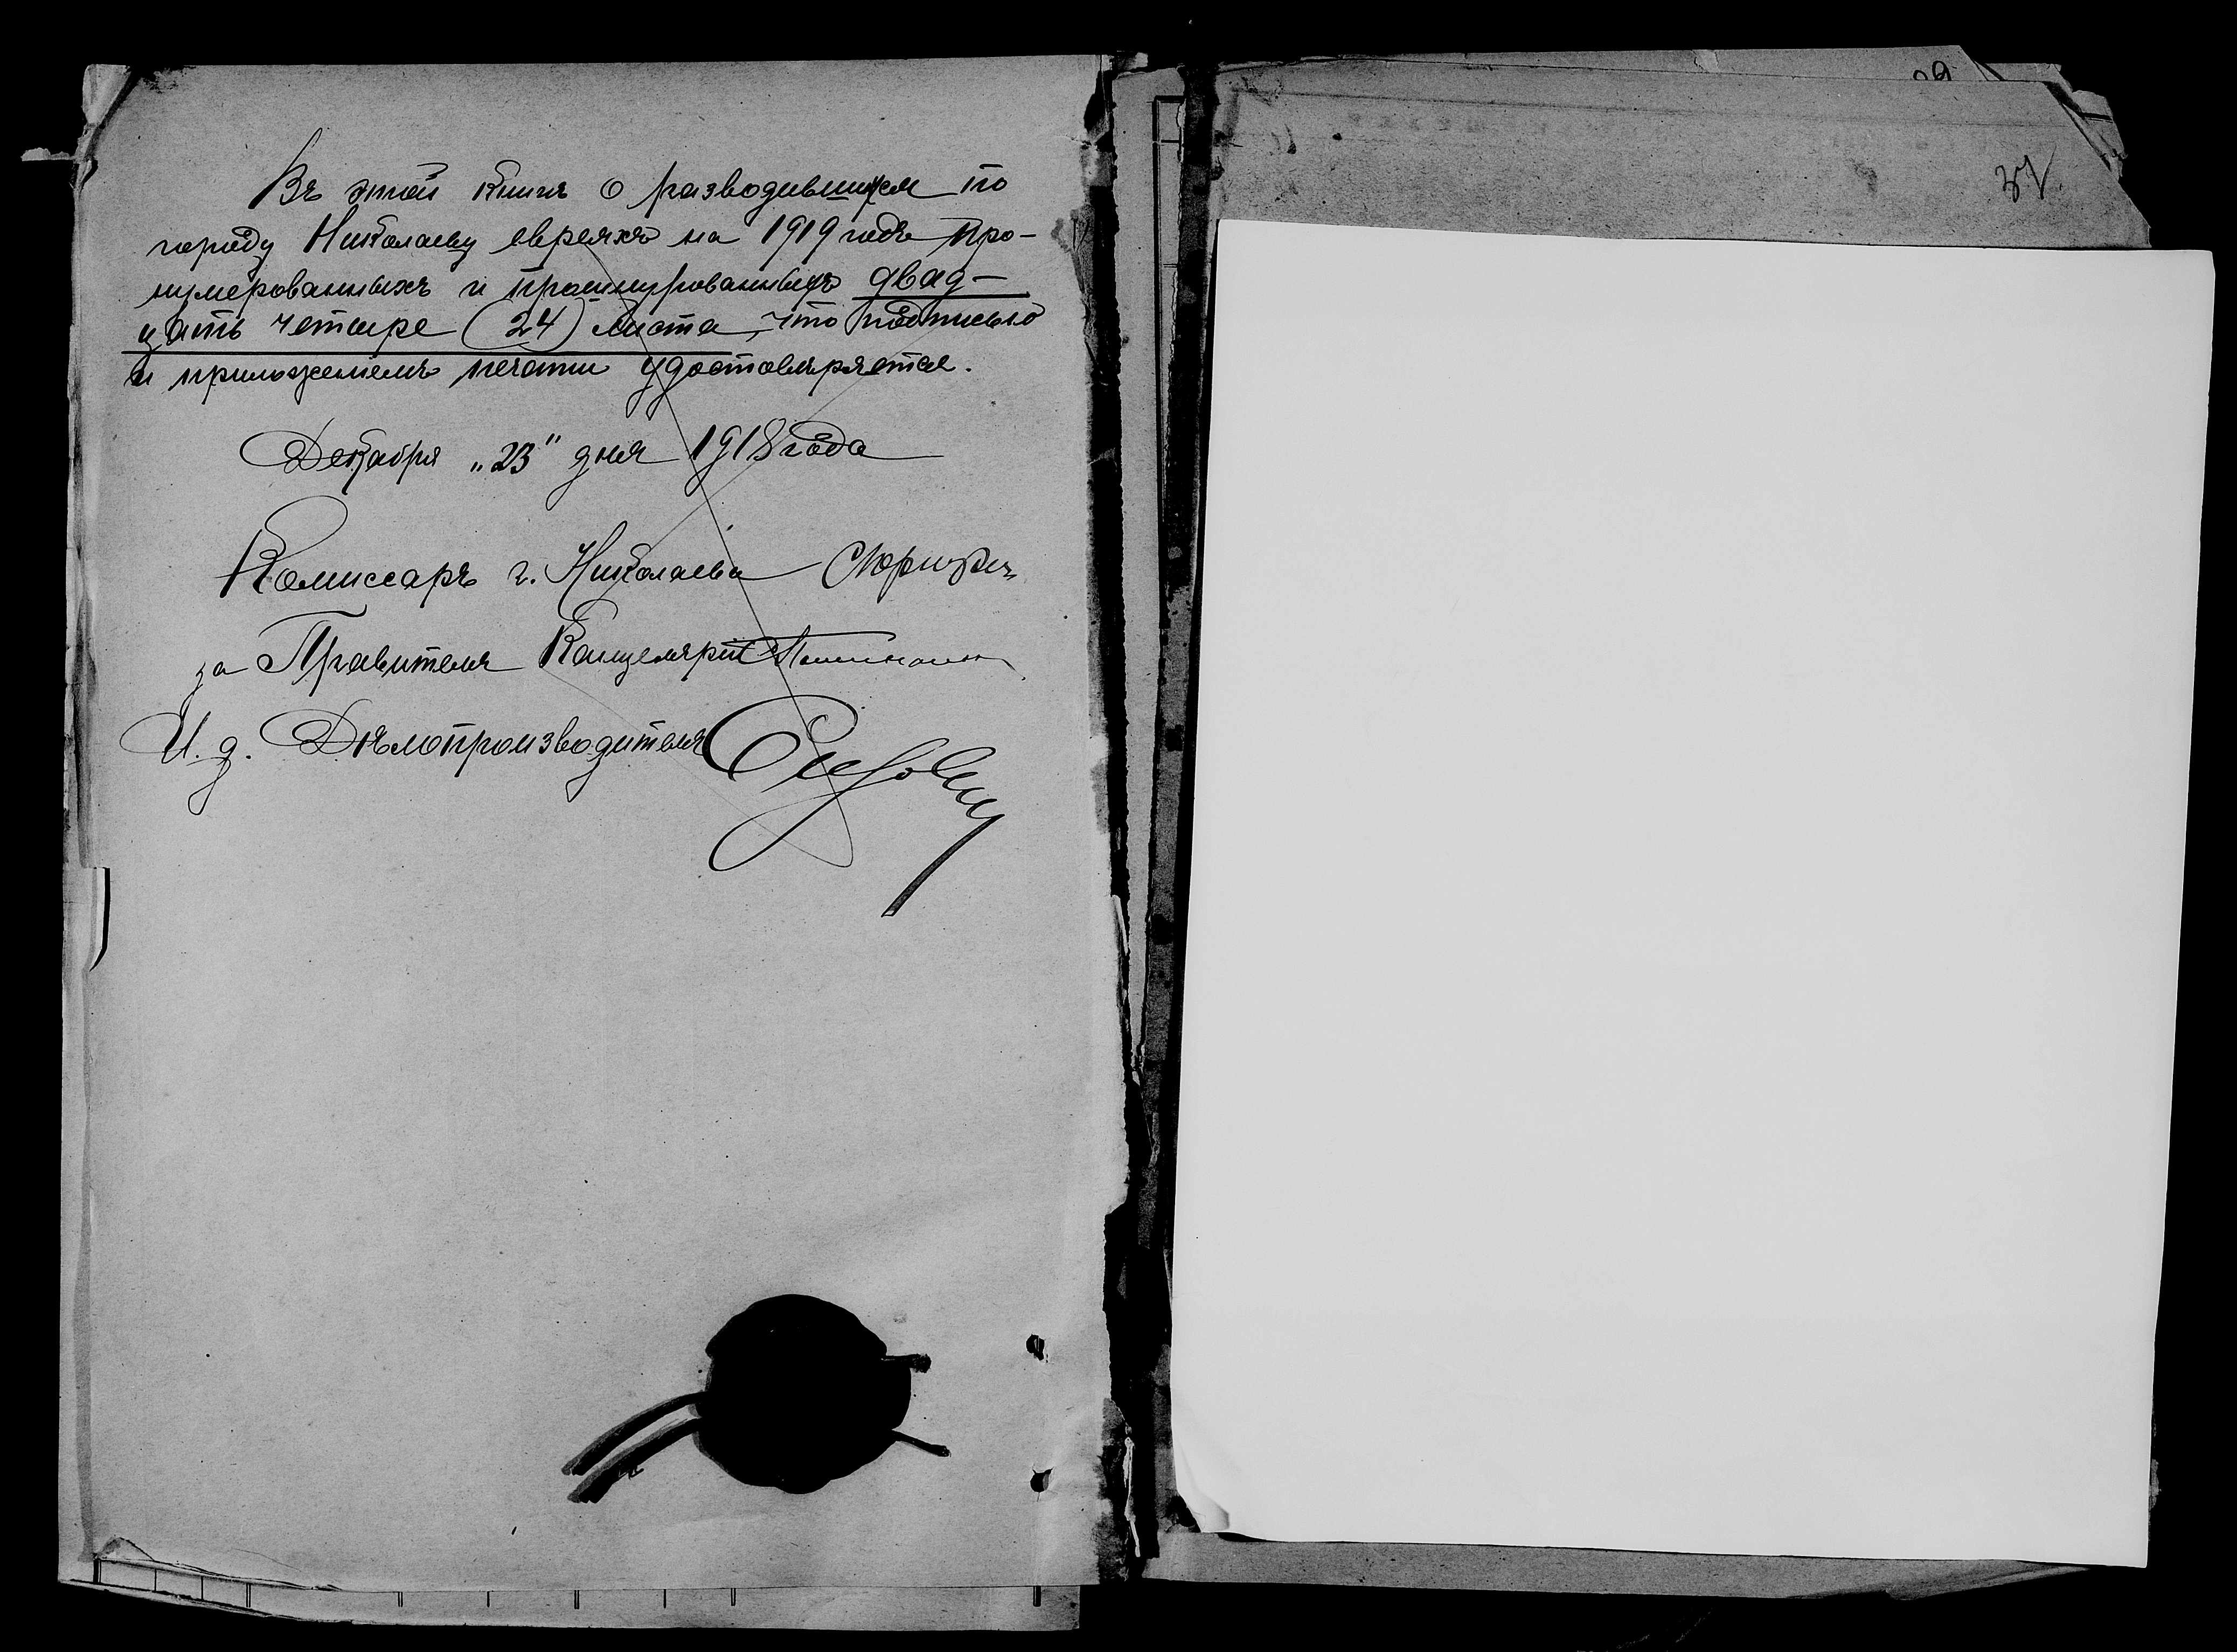 Въ этой книгѣ о разводившихся по
городу Николаеву евреяхъ на 1919 годъ про-
нумерованныхъ и прошнурованныхъ двад-
цать четыре (24) листа, что подписью
и приложеніемъ печати удостовѣряется.
Декабря „23" дня 1918 года
Комиссаръ г. Николаева
за Правителя Канцеляріи
И. д. Дѣлопроизводителя
37